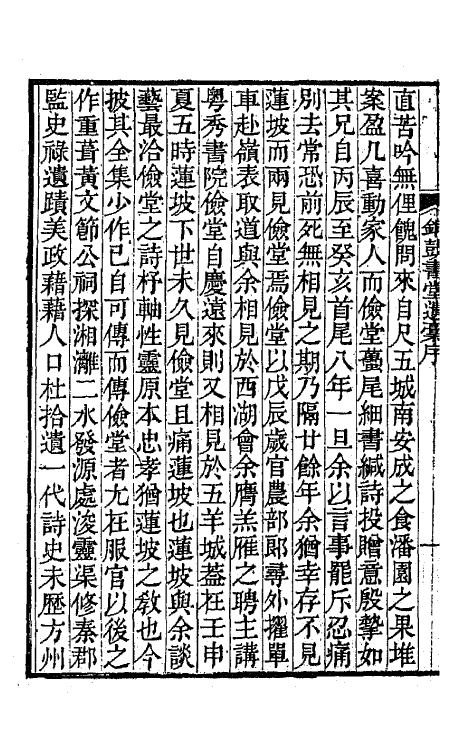 直苦吟無俚餽問來自尺五城南安成之食潘園之果堆
案盈几喜動家人而儉堂蠆尾細書緘詩投贈意殷摯如
其兄自丙辰至癸亥首尾八年一旦余以言事罷斥忍痛
別去常恐前死無相見之期乃隔廿餘年余猶幸存不見
蓮坡而兩見儉堂焉儉堂以戊辰歲官農部郞尋外擢單
車赴嶺表取道與余相見於西湖會余膺羔雁之聘主講
粤秀書院儉堂自慶遠來則又相見於五羊城葢在壬申
夏五時蓮坡下世未久見儉堂且痛蓮坡也蓮坡與余談
藝最洽儉堂之詩杼軸性靈原本忠孝猶蓮坡之敎也今
披其全集少作已自可傳而傳儉堂者尤在服官以後之
作重葺黃文節公祠探湘灕二水發源處浚靈渠修秦郡
監史祿遺蹟美政藉藉人口杜拾遺一代詩史未歷方州
銅鼓書堂遺稾序
一